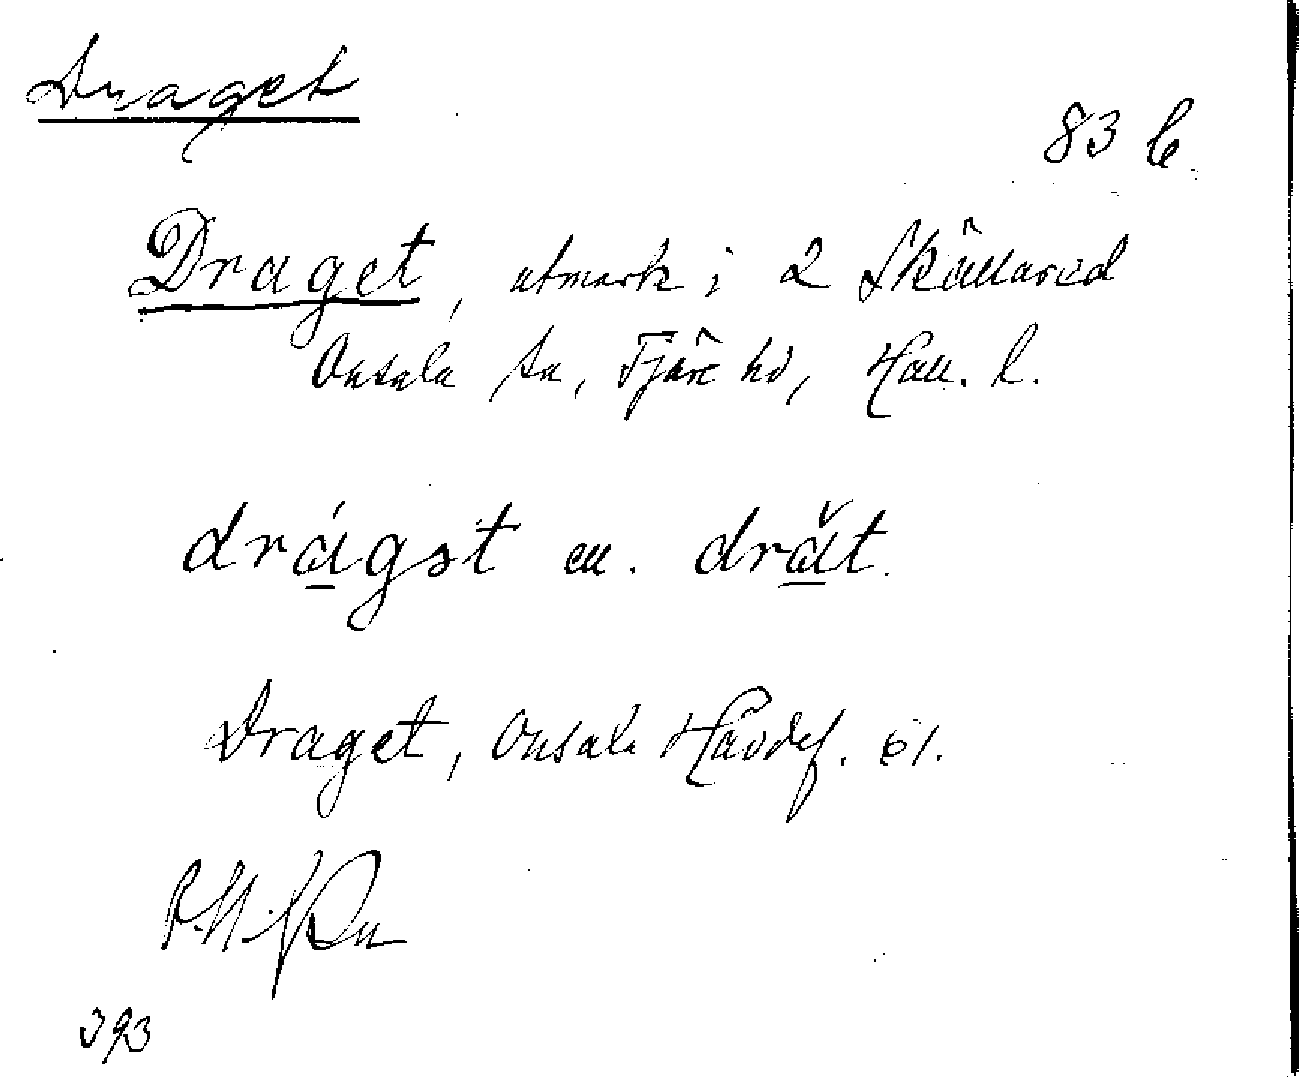 Draget
83 b.
Draget, utmark i 2 Skällared
Onsala sn, Fjäre hd, Hall. l.
drágst ell. drǎt.
Draget, Onsala Hävdef. 61.
393